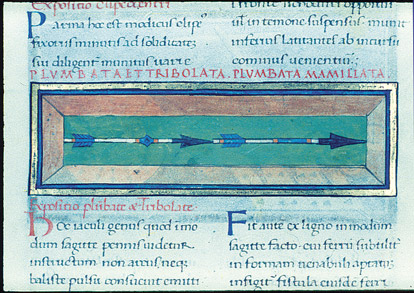 Expositio clypeocentri
Parma hoc est modicus clipeꝰ
fixoris minutus ad soliditatē
sui diligent̄ munitus varie
in temone suspensus munit
inferius latitantes ab incursu
cominus venientiū:
PLVMBATA ET TRIBOLATA. PLVMBATA MAMILLATA.
Expositio plūbatę & Tribolate
Hoc iaculi genus quod imo
dum sagitte pennis uidetur
instructum non arcus neq
baliste pulsu consueuit emitti
Fit ante ex ligno in modum
sagitte facto cui ferrū subtilit
in formam uenabuli aptatur
infigit fistula eiusdē ferr